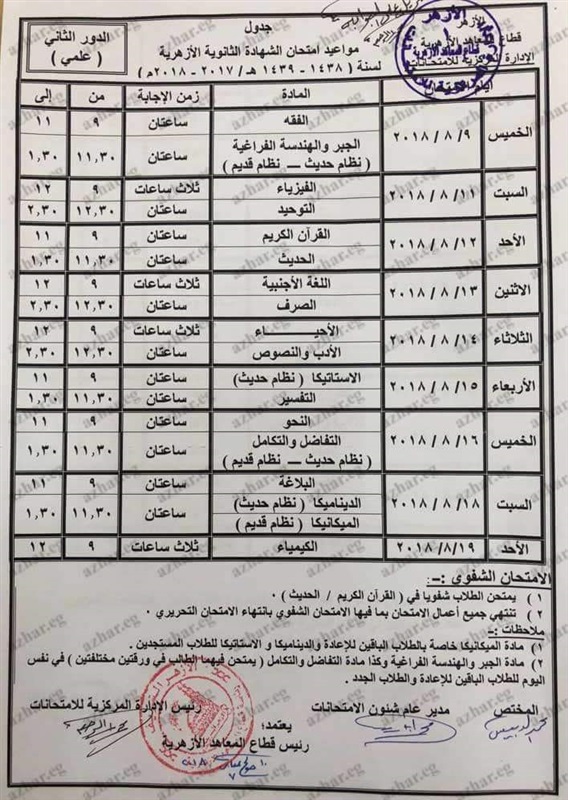 الأزهر
قطاع المعاهد الأزهرية
الإدارة المركزية للامتحانات
جدول
مواعيد امتحان الشهادة الثانوية الأزهرية
لسنة ( ١٤٣٨ - ١٤٣٩ هـ / ٢٠١٧ - ٢٠١٨ م )
الدور الثاني
( علمي )
المادة زمن الإجابة من إلى
الخميس ٩ / ٨ / ٢٠١٨ الفقه ساعتان ٩ ١١
الجبر والهندسة الفراغية ساعتان ١١,٣٠ ١,٣٠
( نظام حديث — نظام قديم )
السبت ١١ / ٨ / ٢٠١٨ الفيزياء ثلاث ساعات ٩ ١٢
التوحيد ساعتان ١٢,٣٠ ٢,٣٠
الأحد ١٢ / ٨ / ٢٠١٨ القرآن الكريم ساعتان ٩ ١١
الحديث ساعتان ١١,٣٠ ١,٣٠
الاثنين ١٣ / ٨ / ٢٠١٨ اللغة الأجنبية ثلاث ساعات ٩ ١٢
الصرف ساعتان ١٢,٣٠ ٢,٣٠
الثلاثاء ١٤ / ٨ / ٢٠١٨ الأحيـــاء ثلاث ساعات ٩ ١٢
الأدب والنصوص ساعتان ١٢,٣٠ ٢,٣٠
الأربعاء ١٥ / ٨ / ٢٠١٨ الاستاتيكا ( نظام حديث) ساعتان ٩ ١١
التفسير ساعتان ١١,٣٠ ١,٣٠
الخميس ١٦ / ٨ / ٢٠١٨ النحو ساعتان ٩ ١١
التفاضل والتكامل ساعتان ١١,٣٠ ١,٣٠
( نظام حديث — نظام قديم )
السبت ١٨ / ٨ / ٢٠١٨ البلاغة ساعتان ٩ ١١
الديناميكا ( نظام حديث) ساعتان ١١,٣٠ ١,٣٠
الميكانيكا ( نظام قديم )
الأحد ١٩ / ٨ / ٢٠١٨ الكيمياء ثلاث ساعات ٩ ١٢
الامتحان الشفوي :-
١ ) يمتحن الطلاب شفويا في ( القرآن الكريم / الحديث ) ٠
٢ ) تنتهي جميع أعمال الامتحان بما فيها الامتحان الشفوي بانتهاء الامتحان التحريري ٠
ملاحظات :-
١ ) مادة الميكانيكا خاصة بالطلاب الباقين للإعادة والديناميكا و الاستاتيكا للطلاب المستجدين .
٢ ) مادة الجبر والهندسة الفراغية وكذا مادة التفاضل والتكامل ( يمتحن فيهما الطالب في ورقتين مختلفتين ) في نفس
اليوم للطلاب الباقين للإعادة والطلاب الجدد .
المختص مدير عام شئون الامتحانات رئيس الإدارة المركزية للامتحانات
يعتمد؛
رئيس قطاع المعاهد الأزهرية
azhar.eg